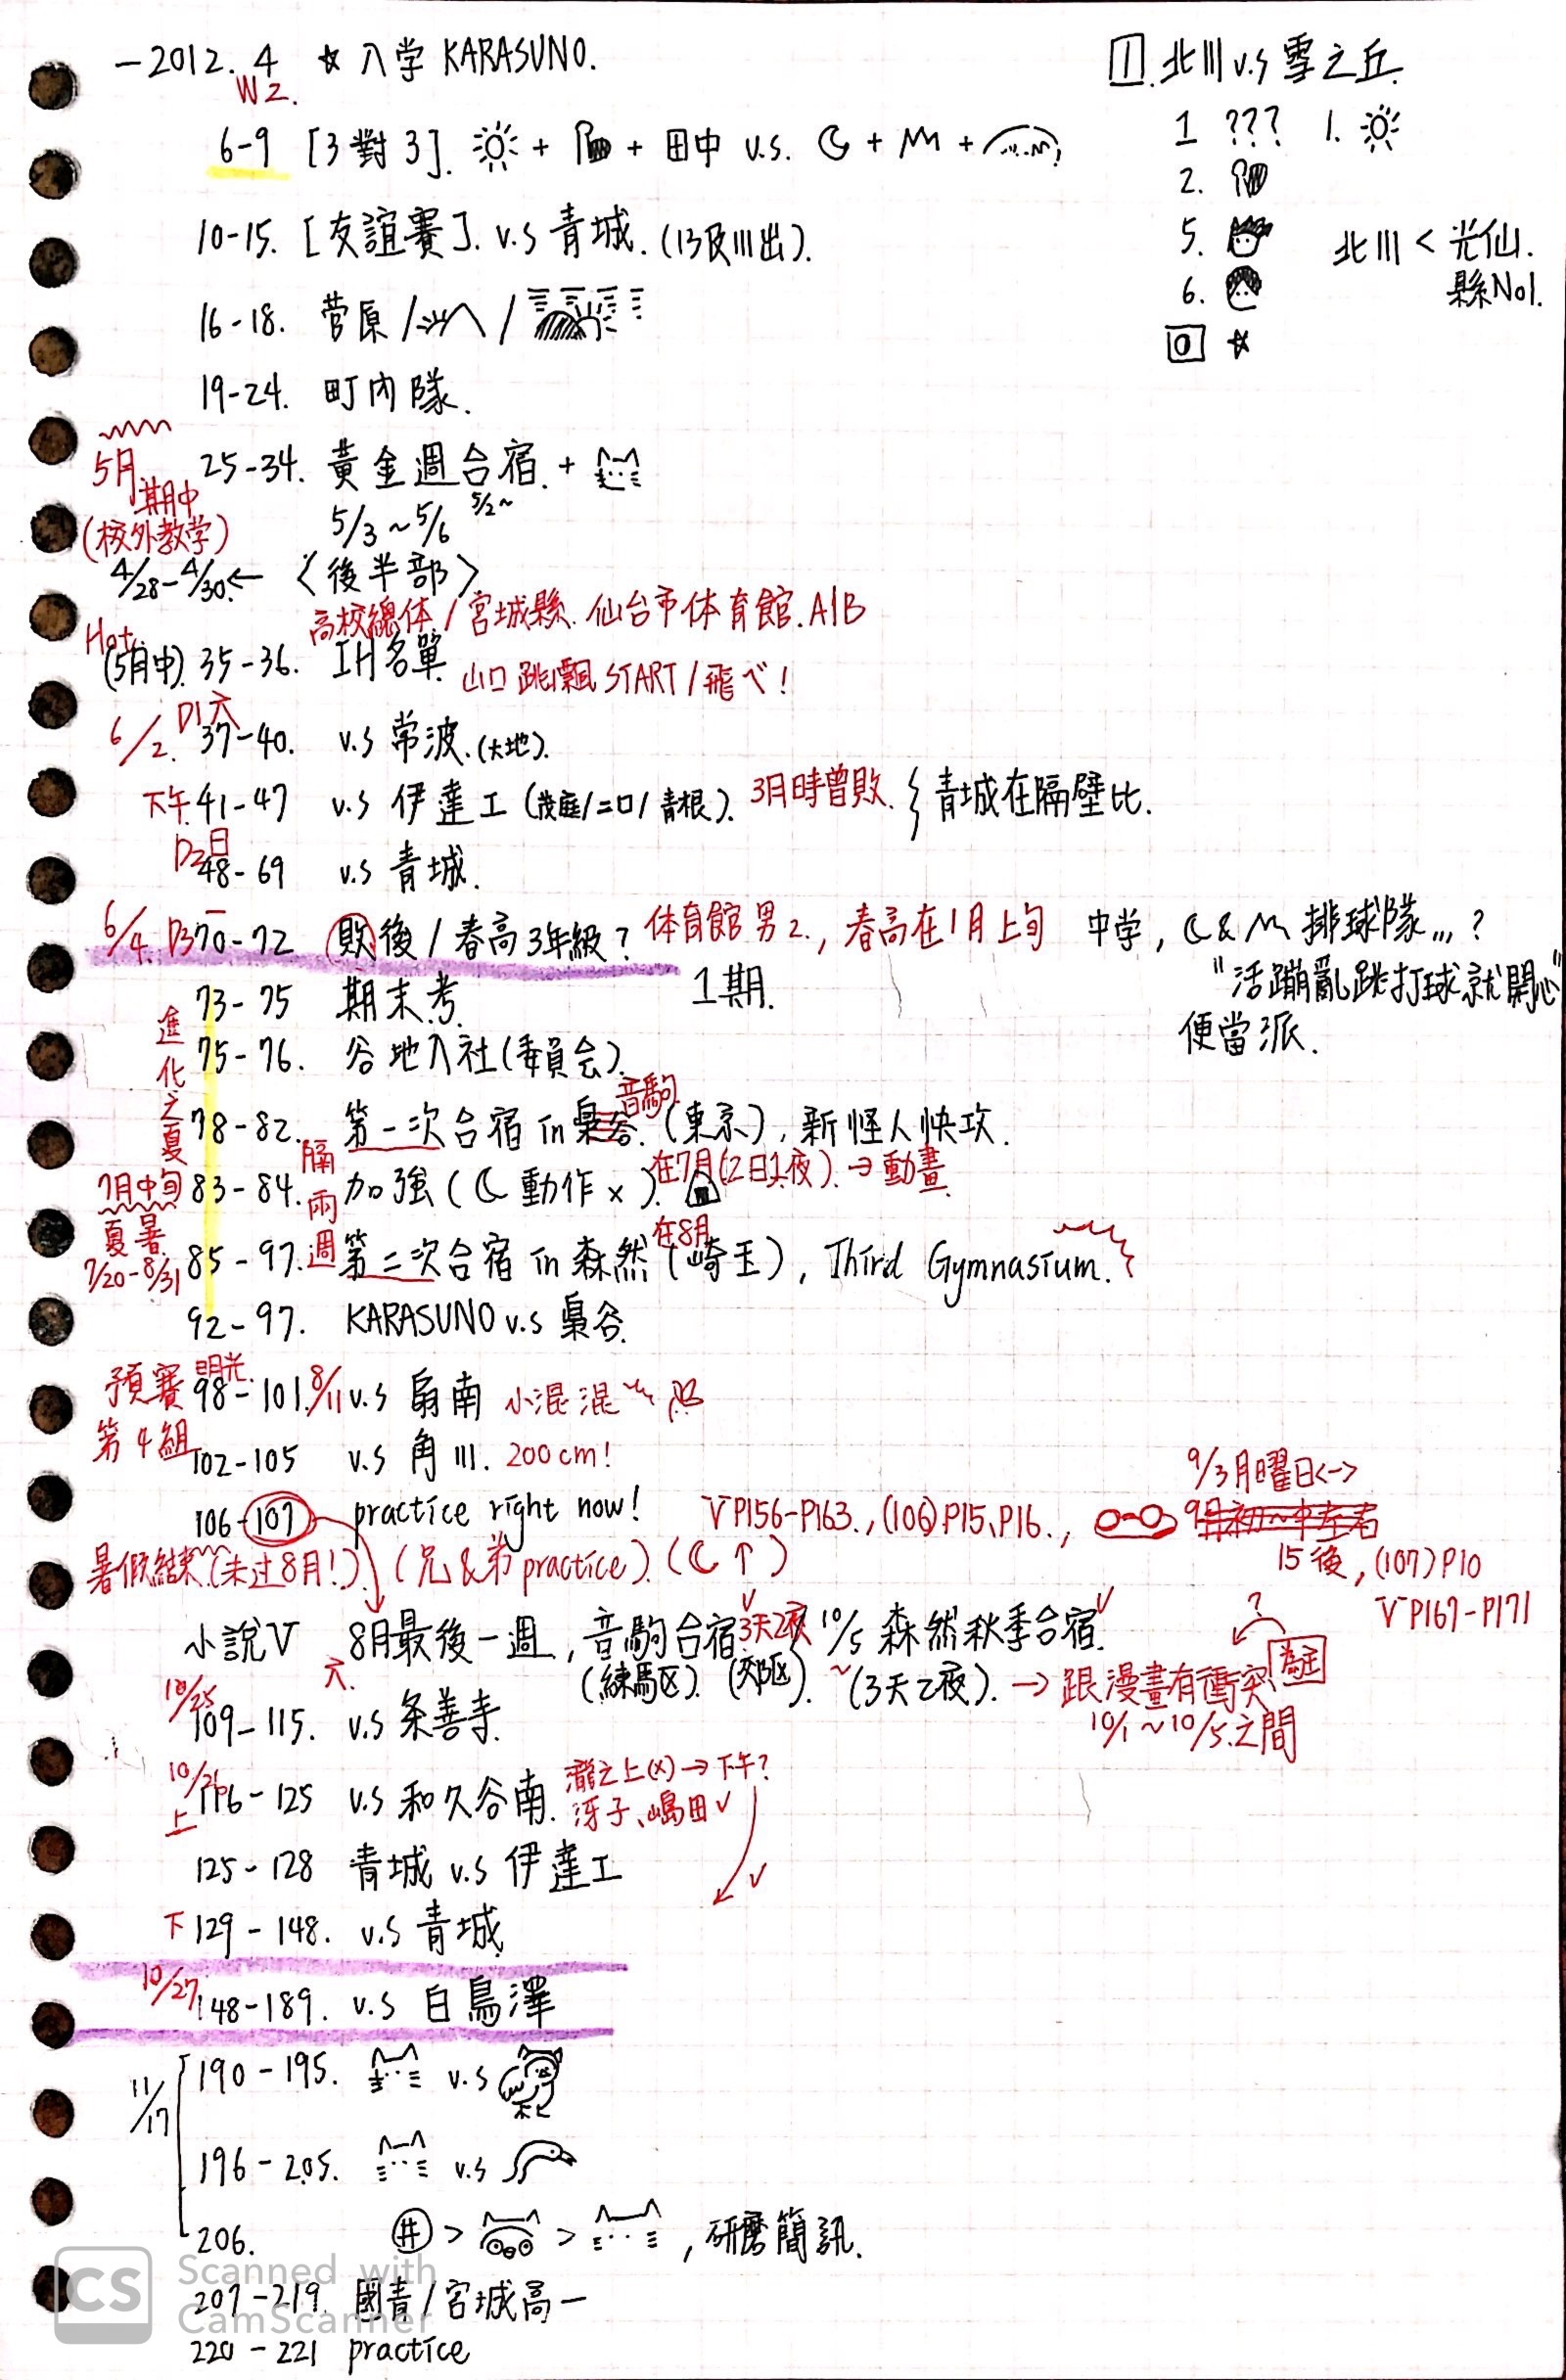 －2012. 4 ☆ 入学 KARASUNO.
W2.
6-9 [3對3]. + + 田中 v.s. + +
10-15. [友誼賽]. v.s 青城. (13及川出).
16-18. 菅原 / /
19-24. 町內隊.
5月
25-34. 黃金週合宿. +
期中
(校外教学)
5/3~5/6 5/2~
4/28-4/30.← 〈後半部〉
高校總体 / 宮城縣. 仙台市体育館. A1B
(5月中). 35-36. IH名單 山口 跳飄 START / 飛べ!
6/2. D1六 37-40. v.s 常波. (大地).
下午 41-47 v.s 伊達工 (茂庭/二口/青根). 3月時曾敗. 青城在隔壁比.
D2日
48-69 v.s 青城.
6/4. D3一 70-72 敗後 / 春高3年級? 体育館 男2., 春高在1月上旬
1期.
中学, & 排球隊...?
"活蹦亂跳打球就開心"
便當派.
進化之夏
73-75 期末考.
75-76. 谷地入社(委員会).
音駒
78-82. 第一次合宿 in 梟谷. (東京), 新怪人快攻.
隔兩週
在7月(2日1夜). → 動畫
7月中旬 83-84. 加強 ( 動作 x ).
夏暑
7/20-8/31
在8月
85-97. 第二次合宿 in 森然 (崎玉), Third Gymnasium.
92-97. KARASUNO v.s 梟谷.
預賽
第4組
明光
98-101. 8/11 v.s 扇南 小混混
102-105 v.s 角川. 200cm!
106-107 practice right now! V P156-P163., (106) P15、P16.,
9/3月曜日<->
9月初~中左右
15後, (107) P10
V P167-P171
暑假結束.(未过8月!). (兄&弟 practice). ( ↑ )
小說V 8月最後一週, 音駒合宿 3天2夜 10/5 森然秋季合宿.
(練馬区). (郊区). ~(3天2夜). → 跟漫畫有衝突 為主 ?
10/1~10/5.之間
10/25 六.
109-115. v.s 条善寺.
10/26 上
116-125 v.s 和久谷南. 瀧之上(x) → 下午?
冴子、嶋田 ✓
125-128 青城 v.s 伊達工
下 129-148. v.s 青城
10/27
148-189. v.s 白鳥澤
11/17
190-195. v.s
196-205. v.s
206. 井 > > , 研磨簡訊.
207-219. 國青 / 宮城高一
220-221 practice
1. 北川 v.s 雪之丘.
1 ??? 1.
2.
5.
6.
0 ☆
北川 < 光仙.
縣No1.
CS Scanned with
CamScanner